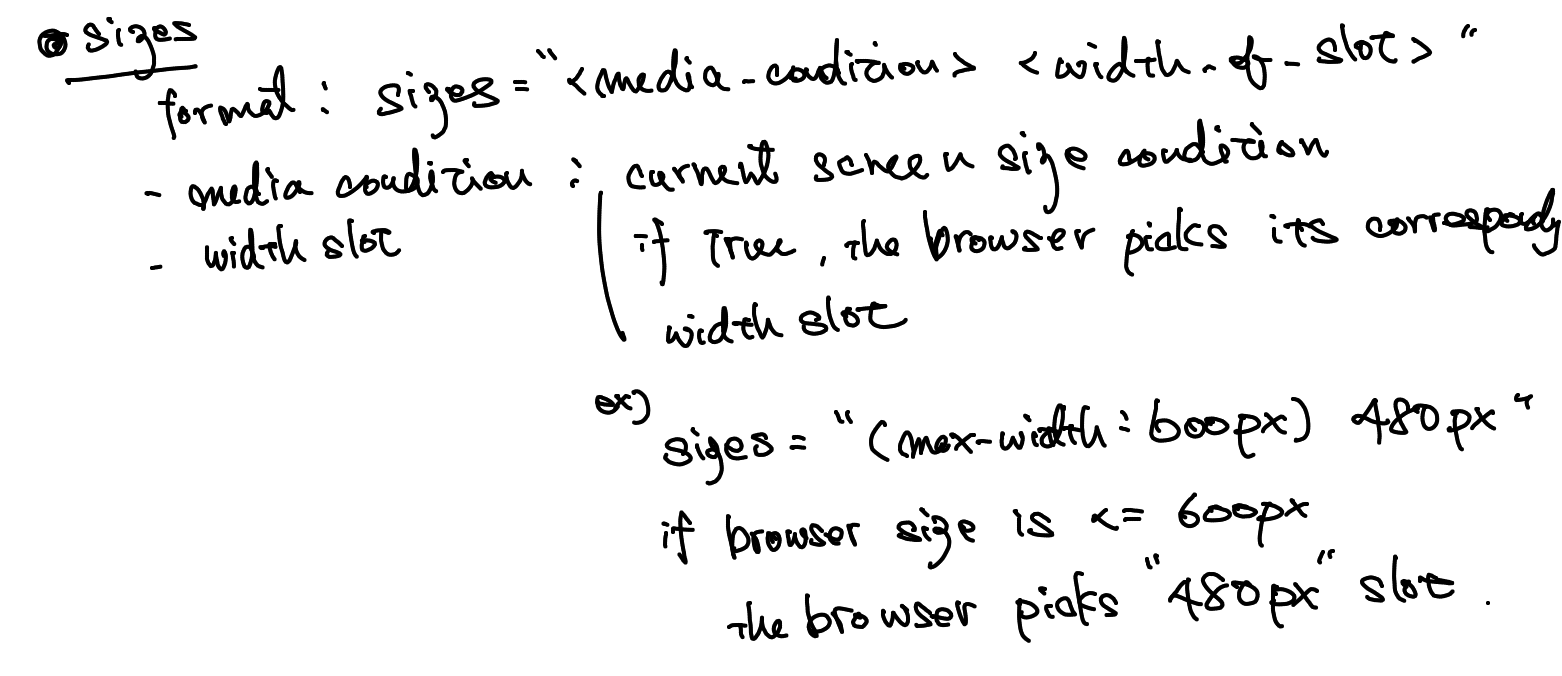 sizes
format : sizes = "<media-condition> <width-of-slot>"
- media condition : current screen size condition
if True, the browser picks its
- width slot
width slot
ex)
sizes = "(max-width : 600px) 480px"
if browser size is <= 600px
the browser picks "480px" slot.